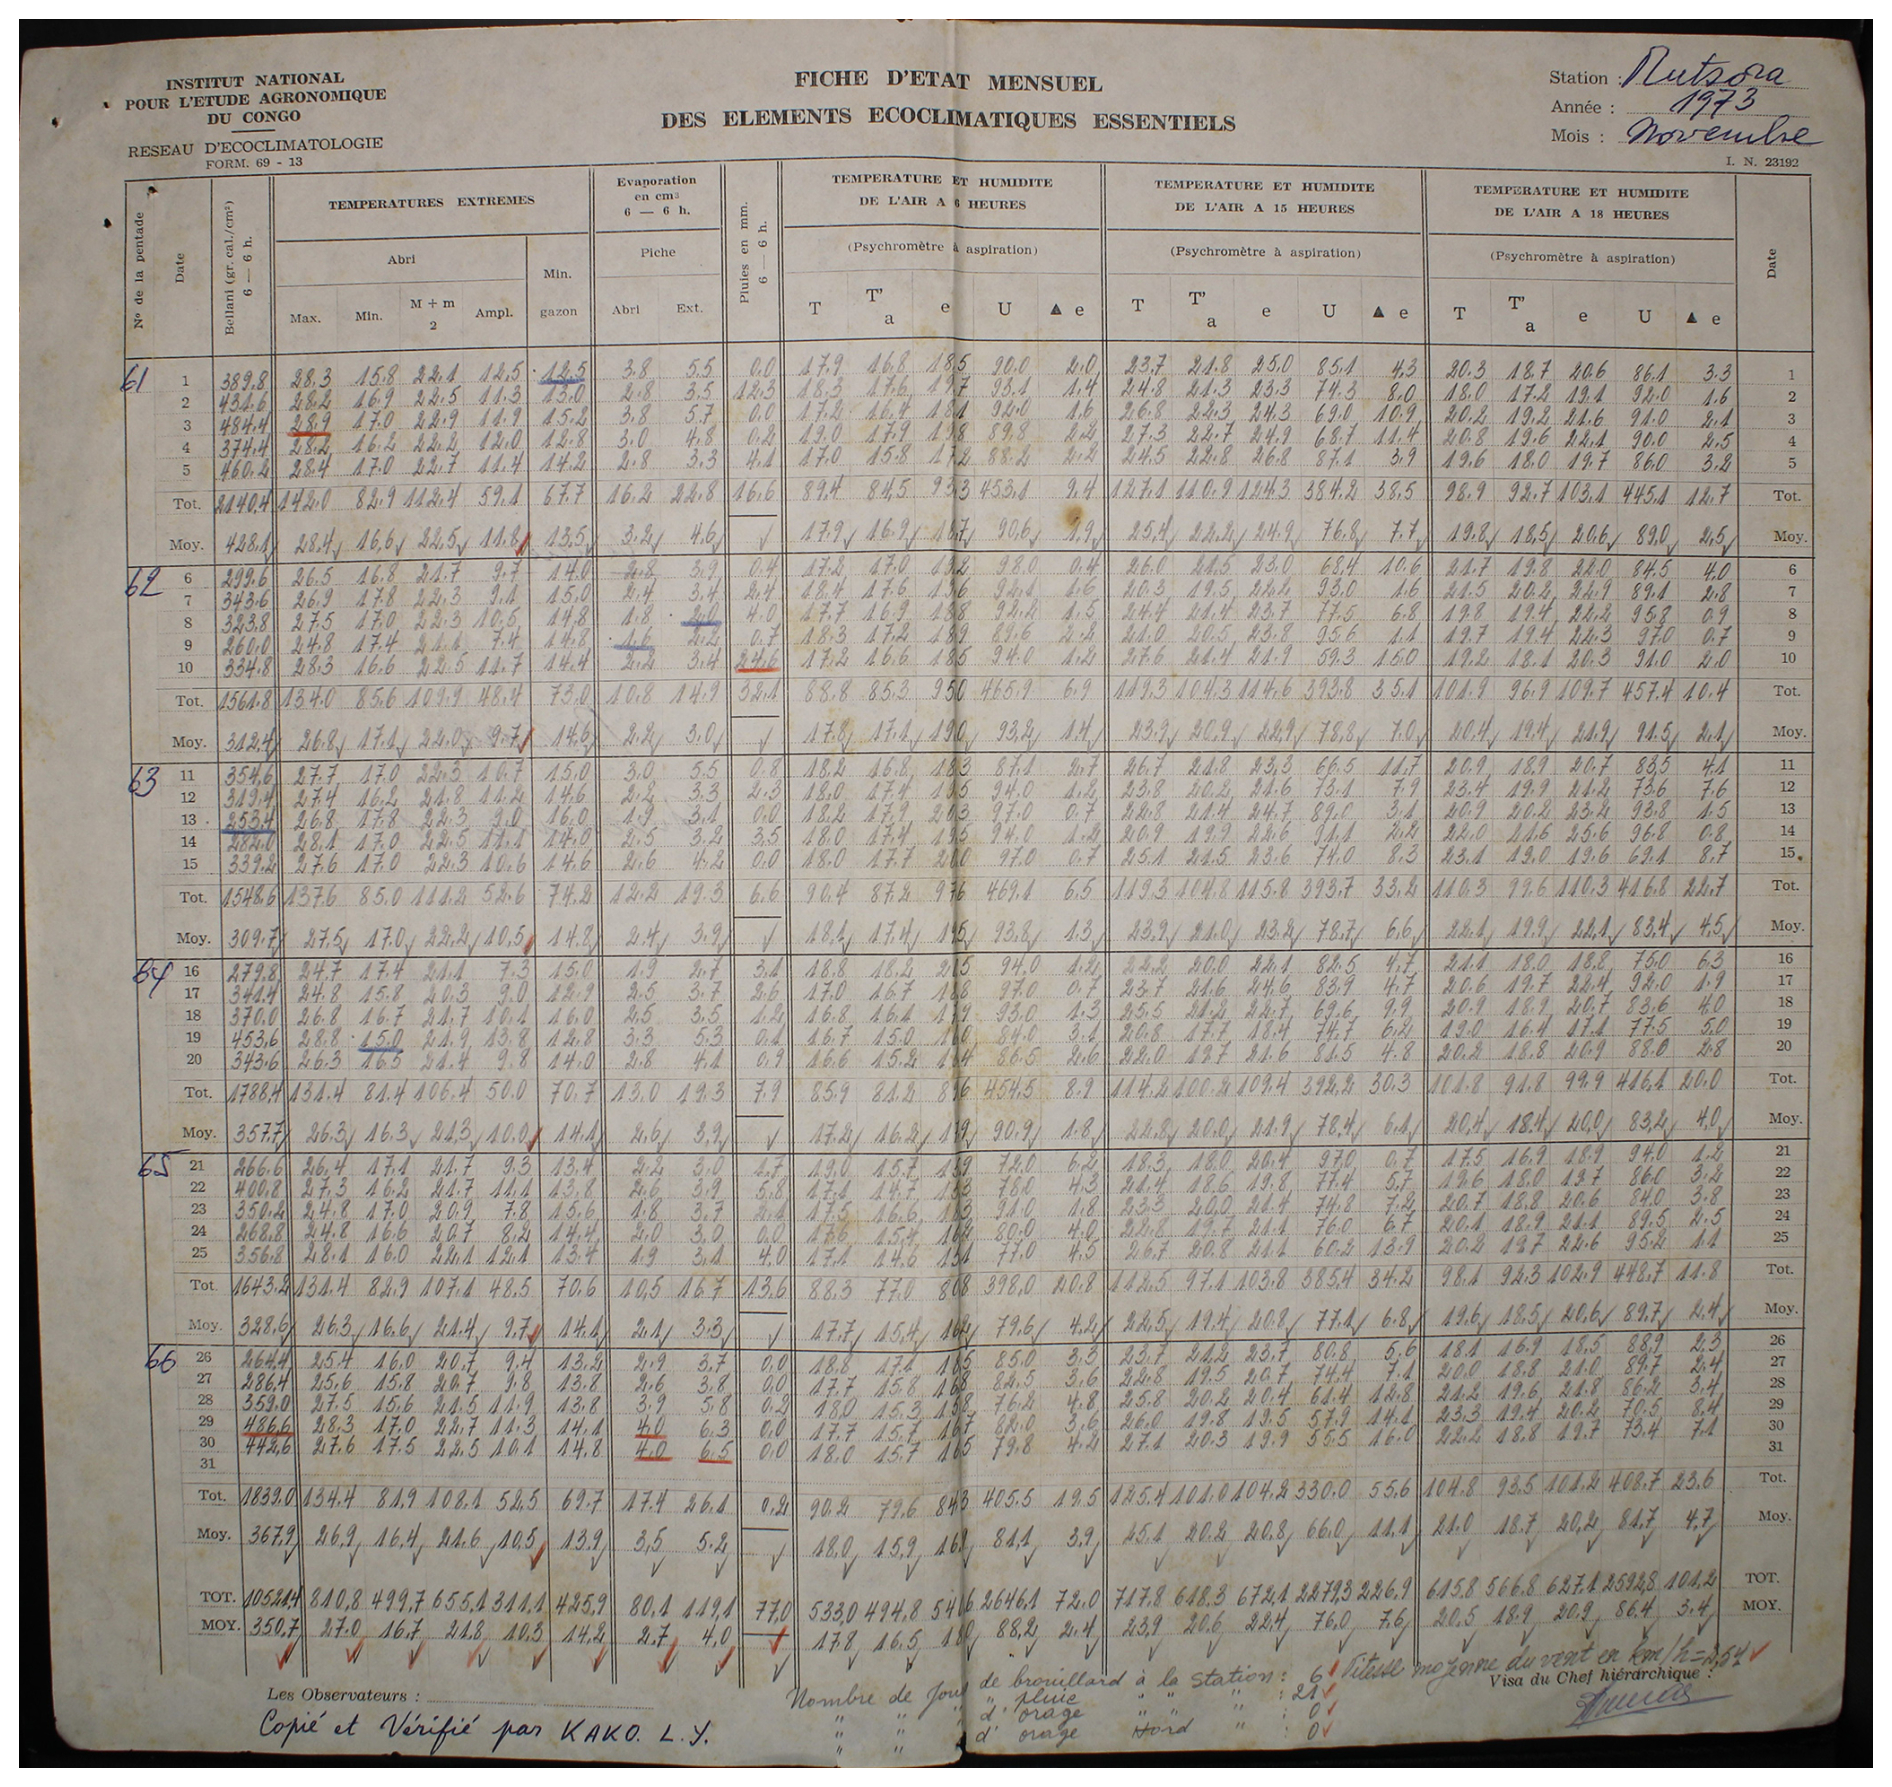 INSTITUT NATIONAL
POUR L'ETUDE AGRONOMIQUE
DU CONGO
RESEAU D'ECOCLIMATOLOGIE
FORM. 69 - 13
FICHE D'ETAT MENSUEL
DES ELEMENTS ECOCLIMATIQUES ESSENTIELS
Station : Mutsora
Année : 1973
Mois : Novembre
I. N. 23192
N° de la pentade
Date
Bellani (gr. cal./cm²) 6 — 6 h.
TEMPERATURES EXTREMES
Abri
Max. Min. M + m 2 Ampl.
Min. gazon
Evaporation en cm³ 6 — 6 h.
Piche
Abri Ext.
Pluies en mm. 6 — 6 h.
TEMPERATURE ET HUMIDITE DE L'AIR A 6 HEURES
(Psychromètre à aspiration)
T T'a e U ▲ e
TEMPERATURE ET HUMIDITE DE L'AIR A 15 HEURES
(Psychromètre à aspiration)
T T'a e U ▲ e
TEMPERATURE ET HUMIDITE DE L'AIR A 18 HEURES
(Psychromètre à aspiration)
T T'a e U ▲ e
Date
61 1 389.8 28.3 15.8 22.1 12.5 12.5 3.8 5.5 0.0 17.9 16.8 18.5 90.0 2.0 23.7 21.8 25.0 85.1 4.3 20.3 18.7 20.6 86.1 3.3 1
2 431.6 28.2 16.9 22.5 11.3 13.0 2.8 3.5 12.3 18.3 17.6 19.7 93.1 1.4 24.8 21.3 23.3 74.3 8.0 18.0 17.2 19.1 92.0 1.6 2
3 484.4 28.9 17.0 22.9 11.9 15.2 3.8 5.7 0.0 17.2 16.4 18.1 92.0 1.6 26.8 22.3 24.3 69.0 10.9 20.2 19.2 21.6 91.0 2.1 3
4 374.4 28.2 16.2 22.2 12.0 12.8 3.0 4.8 0.2 19.0 17.9 19.8 89.8 2.2 27.3 22.7 24.9 68.7 11.4 20.8 19.6 22.1 90.0 2.5 4
5 460.2 28.4 17.0 22.7 11.4 14.2 2.8 3.3 4.1 17.0 15.8 17.2 88.2 2.2 24.5 22.8 26.8 87.1 3.9 19.6 18.0 19.7 86.0 3.2 5
Tot. 2140.4 142.0 82.9 112.4 59.1 67.7 16.2 22.8 16.6 89.4 84.5 93.3 453.1 9.4 127.1 110.9 124.3 384.2 38.5 98.9 92.7 103.1 445.1 12.7 Tot.
Moy. 428.1 28.4 16.6 22.5 11.8 13.5 3.2 4.6 17.9 16.9 18.7 90.6 1.9 25.4 22.2 24.9 76.8 7.7 19.8 18.5 20.6 89.0 2.5 Moy.
62 6 299.6 26.5 16.8 21.7 9.7 14.0 2.8 3.9 0.4 17.2 17.0 19.2 98.0 0.4 26.0 21.5 23.0 68.4 10.6 21.7 19.8 22.0 84.5 4.0 6
7 343.6 26.9 17.8 22.3 9.1 15.0 2.4 3.4 2.4 18.4 17.6 19.6 92.1 1.6 20.3 19.5 22.2 93.0 1.6 21.5 20.2 22.9 89.1 2.8 7
8 323.8 27.5 17.0 22.3 10.5 14.8 1.8 2.0 4.0 17.7 16.9 18.8 92.2 1.5 24.4 21.4 23.7 77.5 6.8 19.8 19.4 22.2 95.8 0.9 8
9 260.0 24.8 17.4 21.1 7.4 14.8 1.6 2.2 0.7 18.3 17.2 18.9 89.6 2.2 21.0 20.5 23.8 95.6 1.1 19.7 19.4 22.3 97.0 0.7 9
10 334.8 28.3 16.6 22.5 11.7 14.4 2.2 3.4 24.6 17.2 16.6 18.5 94.0 1.2 27.6 21.4 21.9 59.3 15.0 19.2 18.1 20.3 91.0 2.0 10
Tot. 1561.8 134.0 85.6 109.9 48.4 73.0 10.8 14.9 32.1 88.8 85.3 95.0 465.9 6.9 119.3 104.3 114.6 393.8 35.1 101.9 96.9 109.7 457.4 10.4 Tot.
Moy. 312.4 26.8 17.1 22.0 9.7 14.6 2.2 3.0 17.8 17.1 19.0 93.2 1.4 23.9 20.9 22.9 78.8 7.0 20.4 19.4 21.9 91.5 2.1 Moy.
63 11 354.6 27.7 17.0 22.3 10.7 15.0 3.0 5.5 0.8 18.2 16.8 18.3 87.1 2.7 26.7 21.8 23.3 66.5 11.7 20.9 18.9 20.7 83.5 4.1 11
12 319.4 27.4 16.2 21.8 11.2 14.6 2.2 3.3 2.3 18.0 17.4 19.5 94.0 1.2 23.8 20.2 21.6 73.1 7.9 23.4 19.9 21.2 73.6 7.6 12
13 253.4 26.8 17.8 22.3 9.0 16.0 1.9 3.1 0.0 18.2 17.9 20.3 97.0 0.7 22.8 21.4 24.7 89.0 3.1 20.9 20.2 23.2 93.8 1.5 13
14 282.0 28.1 17.0 22.5 11.1 14.0 2.5 3.2 3.5 18.0 17.4 19.5 94.0 1.2 20.9 19.9 22.6 91.1 2.2 22.0 21.6 25.6 96.8 0.8 14
15 339.2 27.6 17.0 22.3 10.6 14.6 2.6 4.2 0.0 18.0 17.7 20.0 97.0 0.7 25.1 21.5 23.6 74.0 8.3 23.1 19.0 19.6 69.1 8.7 15
Tot. 1548.6 137.6 85.0 111.2 52.6 74.2 12.2 19.3 6.6 90.4 87.2 97.6 469.1 6.5 119.3 104.8 115.8 393.7 33.2 110.3 99.6 110.3 416.8 22.7 Tot.
Moy. 309.7 27.5 17.0 22.2 10.5 14.8 2.4 3.9 18.1 17.4 19.5 93.8 1.3 23.9 21.0 23.2 78.7 6.6 22.1 19.9 22.1 83.4 4.5 Moy.
64 16 279.8 24.7 17.4 21.1 7.3 15.0 1.9 2.7 3.1 18.8 18.2 21.5 94.0 1.2 22.2 20.0 22.1 82.5 4.7 21.1 18.0 18.8 75.0 6.3 16
17 341.4 24.8 15.8 20.3 9.0 12.9 2.5 3.7 2.6 17.0 16.7 18.8 97.0 0.7 23.7 21.6 24.6 83.9 4.7 20.6 19.7 22.4 92.0 1.9 17
18 370.0 26.8 16.7 21.7 10.1 16.0 2.5 3.5 1.2 16.8 16.1 17.9 93.0 1.3 25.5 21.2 22.7 69.6 9.9 20.9 18.9 20.7 83.6 4.0 18
19 453.6 28.8 15.0 21.9 13.8 12.8 3.3 5.3 0.1 16.7 15.0 16.0 84.0 3.1 20.8 17.7 18.4 74.7 6.2 19.0 16.4 17.1 77.5 5.0 19
20 343.6 26.3 16.5 21.4 9.8 14.0 2.8 4.1 0.9 16.6 15.2 16.4 86.5 2.6 22.0 19.7 21.6 81.5 4.8 20.2 18.8 20.9 88.0 2.8 20
Tot. 1788.4 131.4 81.4 106.4 50.0 70.7 13.0 19.3 7.9 85.9 81.2 89.6 454.5 8.9 114.2 100.2 109.4 392.2 30.3 101.8 91.8 99.9 416.1 20.0 Tot.
Moy. 357.7 26.3 16.3 21.3 10.0 14.1 2.6 3.9 17.2 16.2 17.9 90.9 1.8 22.8 20.0 21.9 78.4 6.1 20.4 18.4 20.0 83.2 4.0 Moy.
65 21 266.6 26.4 17.1 21.7 9.3 13.4 2.2 3.0 1.7 19.0 15.7 15.9 72.0 6.2 18.3 18.0 20.4 97.0 0.7 17.5 16.9 18.9 94.0 1.2 21
22 400.8 27.3 16.2 21.7 11.1 13.8 2.6 3.9 5.8 17.1 14.7 15.3 78.0 4.3 21.4 18.6 19.8 77.4 5.7 19.6 18.0 19.7 86.0 3.2 22
23 350.2 24.8 17.0 20.9 7.8 15.6 1.8 3.7 2.1 17.5 16.6 18.3 91.0 1.8 23.3 20.0 21.4 74.8 7.2 20.7 18.8 20.6 84.0 3.8 23
24 268.8 24.8 16.6 20.7 8.2 14.4 2.0 3.0 0.0 17.6 15.4 16.2 80.0 4.0 22.8 19.7 21.1 76.0 6.7 20.1 18.9 21.1 89.5 2.5 24
25 356.8 28.1 16.0 22.1 12.1 13.4 1.9 3.1 4.0 17.1 14.6 15.1 77.0 4.5 26.7 20.8 21.1 60.2 13.9 20.2 19.7 22.6 95.2 1.1 25
Tot. 1643.2 131.4 82.9 107.1 48.5 70.6 10.5 16.7 13.6 88.3 77.0 80.8 398.0 20.8 112.5 97.1 103.8 385.4 34.2 98.1 92.3 102.9 448.7 11.8 Tot.
Moy. 328.6 26.3 16.6 21.4 9.7 14.1 2.1 3.3 17.7 15.4 16.2 79.6 4.2 22.5 19.4 20.8 77.1 6.8 19.6 18.5 20.6 89.7 2.4 Moy.
66 26 264.4 25.4 16.0 20.7 9.4 13.2 2.9 3.7 0.0 18.8 17.1 18.5 85.0 3.3 23.7 21.2 23.7 80.8 5.6 18.1 16.9 18.5 88.9 2.3 26
27 286.4 25.6 15.8 20.7 9.8 13.8 2.6 3.8 0.0 17.7 15.8 16.8 82.5 3.6 22.8 19.5 20.7 74.4 7.1 20.0 18.8 21.0 89.7 2.4 27
28 359.0 27.5 15.6 21.5 11.9 13.8 3.9 5.8 0.2 18.0 15.3 15.8 76.2 4.8 25.8 20.2 20.4 61.4 12.8 21.2 19.6 21.8 86.2 3.4 28
29 486.6 28.3 17.0 22.7 11.3 14.1 4.0 6.3 0.0 17.7 15.7 16.7 82.0 3.6 26.0 19.8 19.5 57.9 14.1 23.3 19.4 20.2 70.5 8.4 29
30 442.6 27.6 17.5 22.5 10.1 14.8 4.0 6.5 0.0 18.0 15.7 16.5 79.8 4.2 27.1 20.3 19.9 55.5 16.0 22.2 18.8 19.7 73.4 7.1 30
31 31
Tot. 1839.0 134.4 81.9 108.1 52.5 69.7 17.4 26.1 0.2 90.2 79.6 84.3 405.5 19.5 125.4 101.0 104.2 330.0 55.6 104.8 93.5 101.2 408.7 23.6 Tot.
Moy. 367.9 26.9 16.4 21.6 10.5 13.9 3.5 5.2 18.0 15.9 16.9 81.1 3.9 25.1 20.2 20.8 66.0 11.1 21.0 18.7 20.2 81.7 4.7 Moy.
TOT. 10521.4 810.8 499.7 655.1 311.1 425.9 80.1 119.1 77.0 533.0 494.8 541.6 2646.1 72.0 717.8 618.3 672.1 2279.3 226.9 615.8 566.8 627.1 2592.8 101.2 TOT.
MOY. 350.7 27.0 16.7 21.8 10.3 14.2 2.7 4.0 17.8 16.5 18.0 88.2 2.4 23.9 20.6 22.4 76.0 7.6 20.5 18.9 20.9 86.4 3.4 MOY.
Les Observateurs :
Copié et Vérifié par KAKO. L. Y.
Nombre de Jour de brouillard à la station : 6
" " " pluie " " " : 21
" " " d'orage " " " : 0
" " " d'orage Nord " : 0
Vitesse moyenne du vent en km/h = 2,54
Visa du Chef hiérarchique :